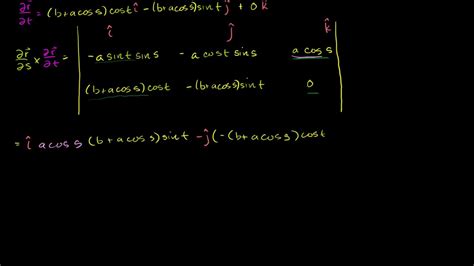 ∂r⃗/∂t = (b+a cos s) cos t î -(b+a cos s) sin t ĵ + 0 k̂
î ĵ k̂
∂r⃗/∂s × ∂r⃗/∂t = | -a sin t sin s - a cos t sin s a cos s |
| (b+a cos s) cos t -(b+a cos s) sin t 0 |
= î a cos s (b+a cos s) sin t -ĵ (-(b+a cos s) cos t